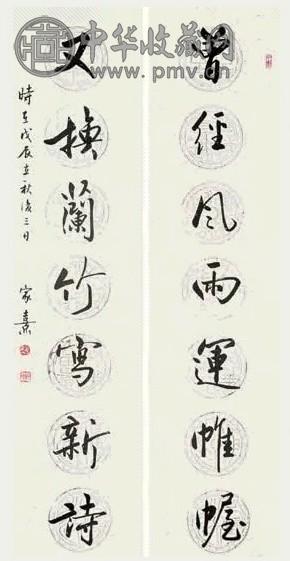 中华收藏网
www.pmv.cn
曾經风雨運帷幄
又換蘭竹寫新詩
時在戊辰立秋後三日
家